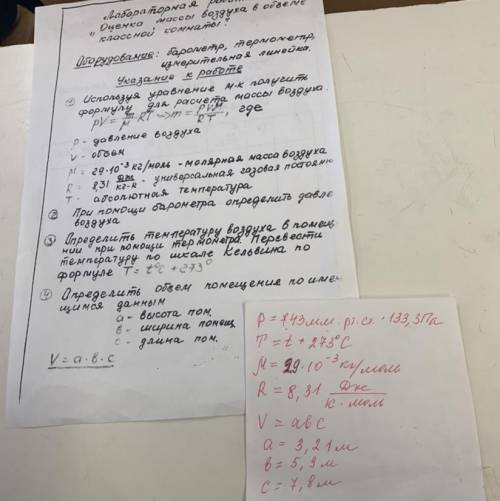 Лабораторная
"Оценка массы воздуха в объеме
классной комнаты."
Оборудование: барометр, термометр,
измерительная линейка.
Указание к работе
① Используя уравнение м-к получить
формулу для расчета массы воздуха.
pV = m/M · RT ⇒ m = pVM/RT, где
P - давление воздуха
V - объем
M = 29·10⁻³ кг/моль - молярная масса воздуха
R = 8,31 - универсальная газовая
T - абсолютная температура
② При помощи барометра определить
воздуха
③ Определить температуру воздуха в
при помощи термометра. Перевести
температуру по шкале Кельвина по
формуле T = t°C + 273°
④ Определить объем помещения по
щимся данным
a - высота пом.
в - ширина помещ
c - длина пом.
V = a·в·c
P = 743 мм. рт. ст · 133,3 Па
T = t + 273°C
M = 29·10⁻³ кг/моль
R = 8,31 Дж/К·моль
V = aвc
a = 3,21 м
в = 5,9 м
c = 7,8 м